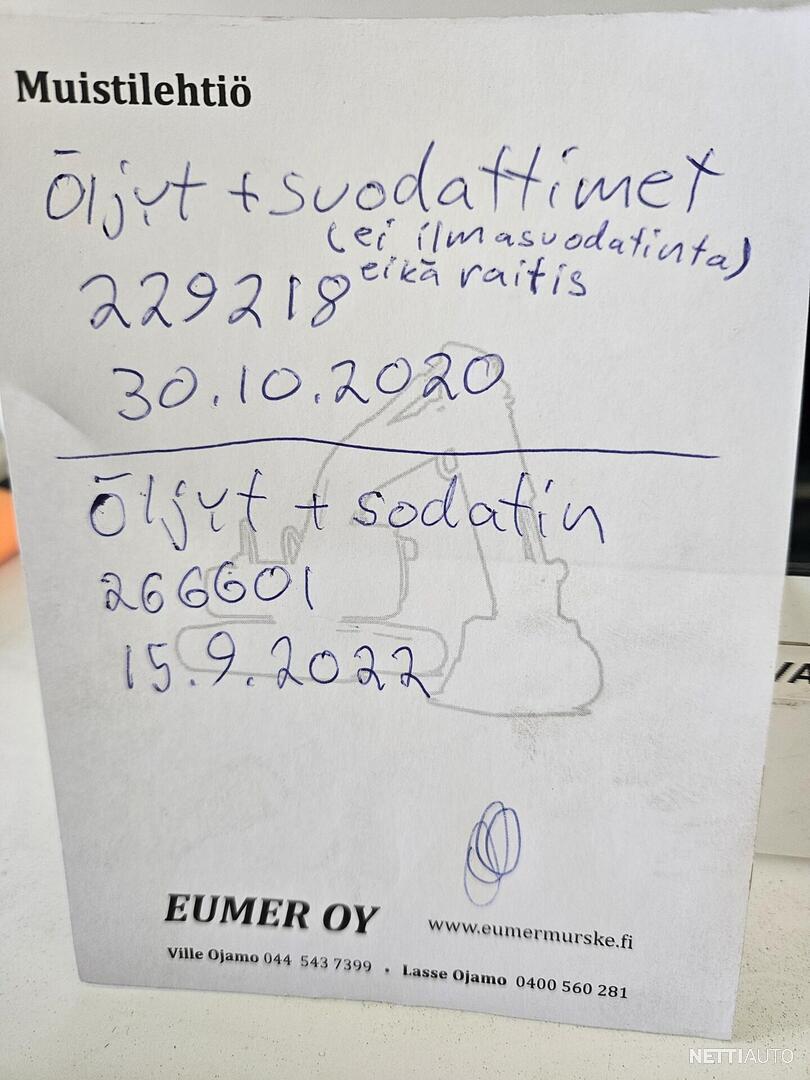 Muistilehtiö
Öljyt + suodattimet
(ei ilmasuodatinta)
eikä raitis
229218
30.10.2020
Öljyt + sodatin
266601
15.9.2022
EUMER OY
www.eumermurske.fi
Ville Ojamo 044 543 7399 • Lasse Ojamo 0400 560 281
NETTIAUTO